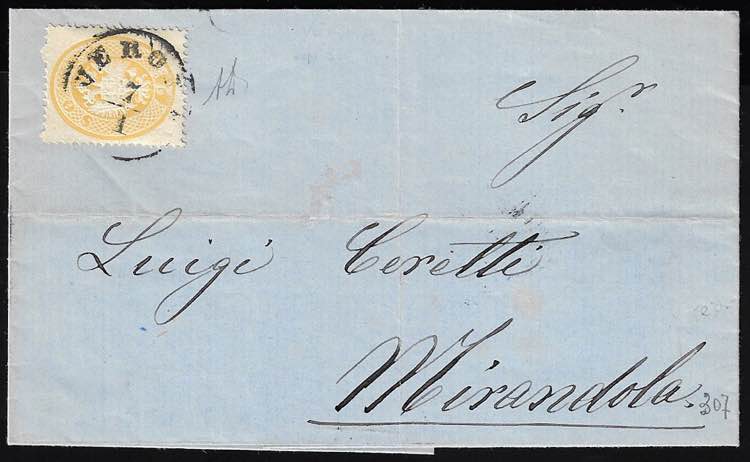 VERO
Sigr.
Luigi Ceretti
Mirandola.
307